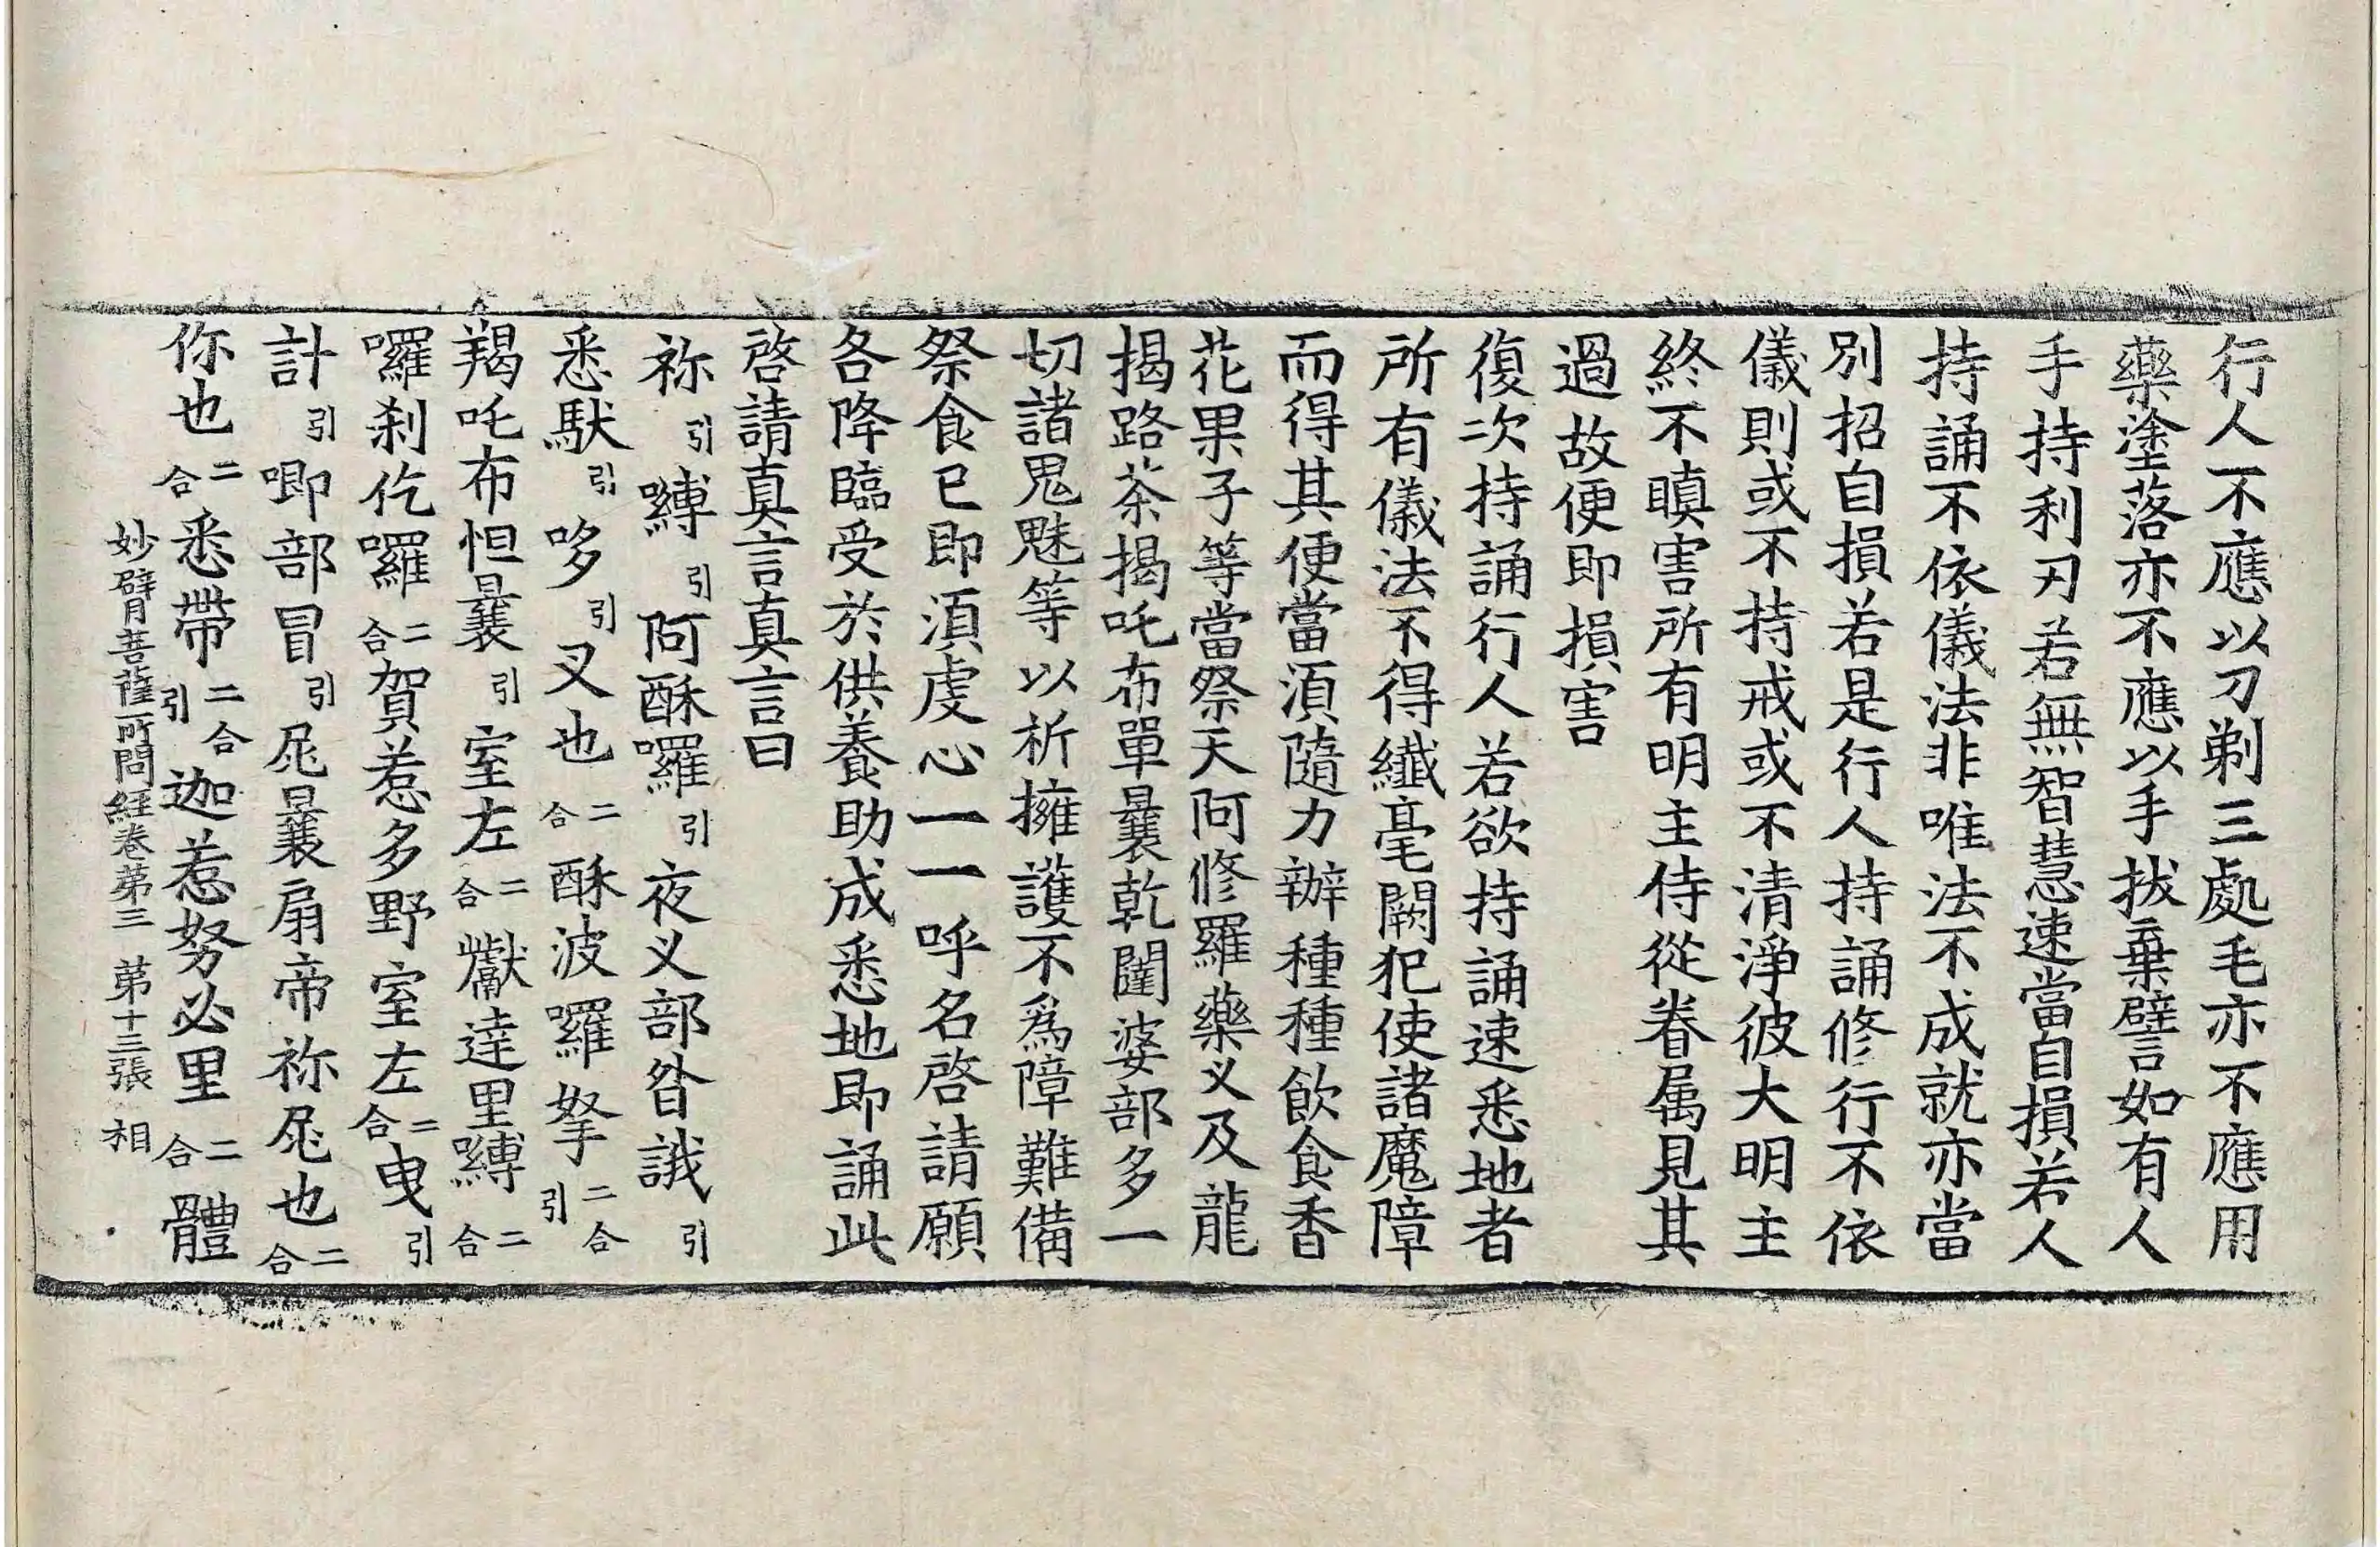 行人不應以刀剃三處毛亦不應用
藥塗落亦不應以手拔棄譬如有人
手持利刃若無智慧速當自損若人
持誦不依儀法非唯法不成就亦當
別招自損若是行人持誦修行不依
儀則或不持戒或不清淨彼大明主
終不瞋害所有明主侍從眷属見其
過故便即損害
復次持誦行人若欲持誦速悉地者
所有儀法不得纖毫闕犯使諸魔障
而得其便當湏隨力辦種種飲食香
花果子等當祭天阿修羅藥义及龍
揭路茶揭吒布單曩乾闥婆部多一
切諸鬼魅等以祈擁護不爲障難備
祭食已即湏虔心一一呼名啓請願
各降臨受於供養助成悉地即誦此
啓請真言真言曰
祢引嚩引阿酥囉引夜义部昝誐引
悉馱引哆引叉也二合酥波囉拏二合引
羯吒布怛曩引室左二合巘達里嚩二合
囉剎仡囉二合賀惹多野室左二合曳引
計引唧部冒引屍曩扇帝祢屍也二合
你也二合悉帶二合引迦惹努必里二合體
妙臂菩薩所問経卷苐三 苐十三張 相